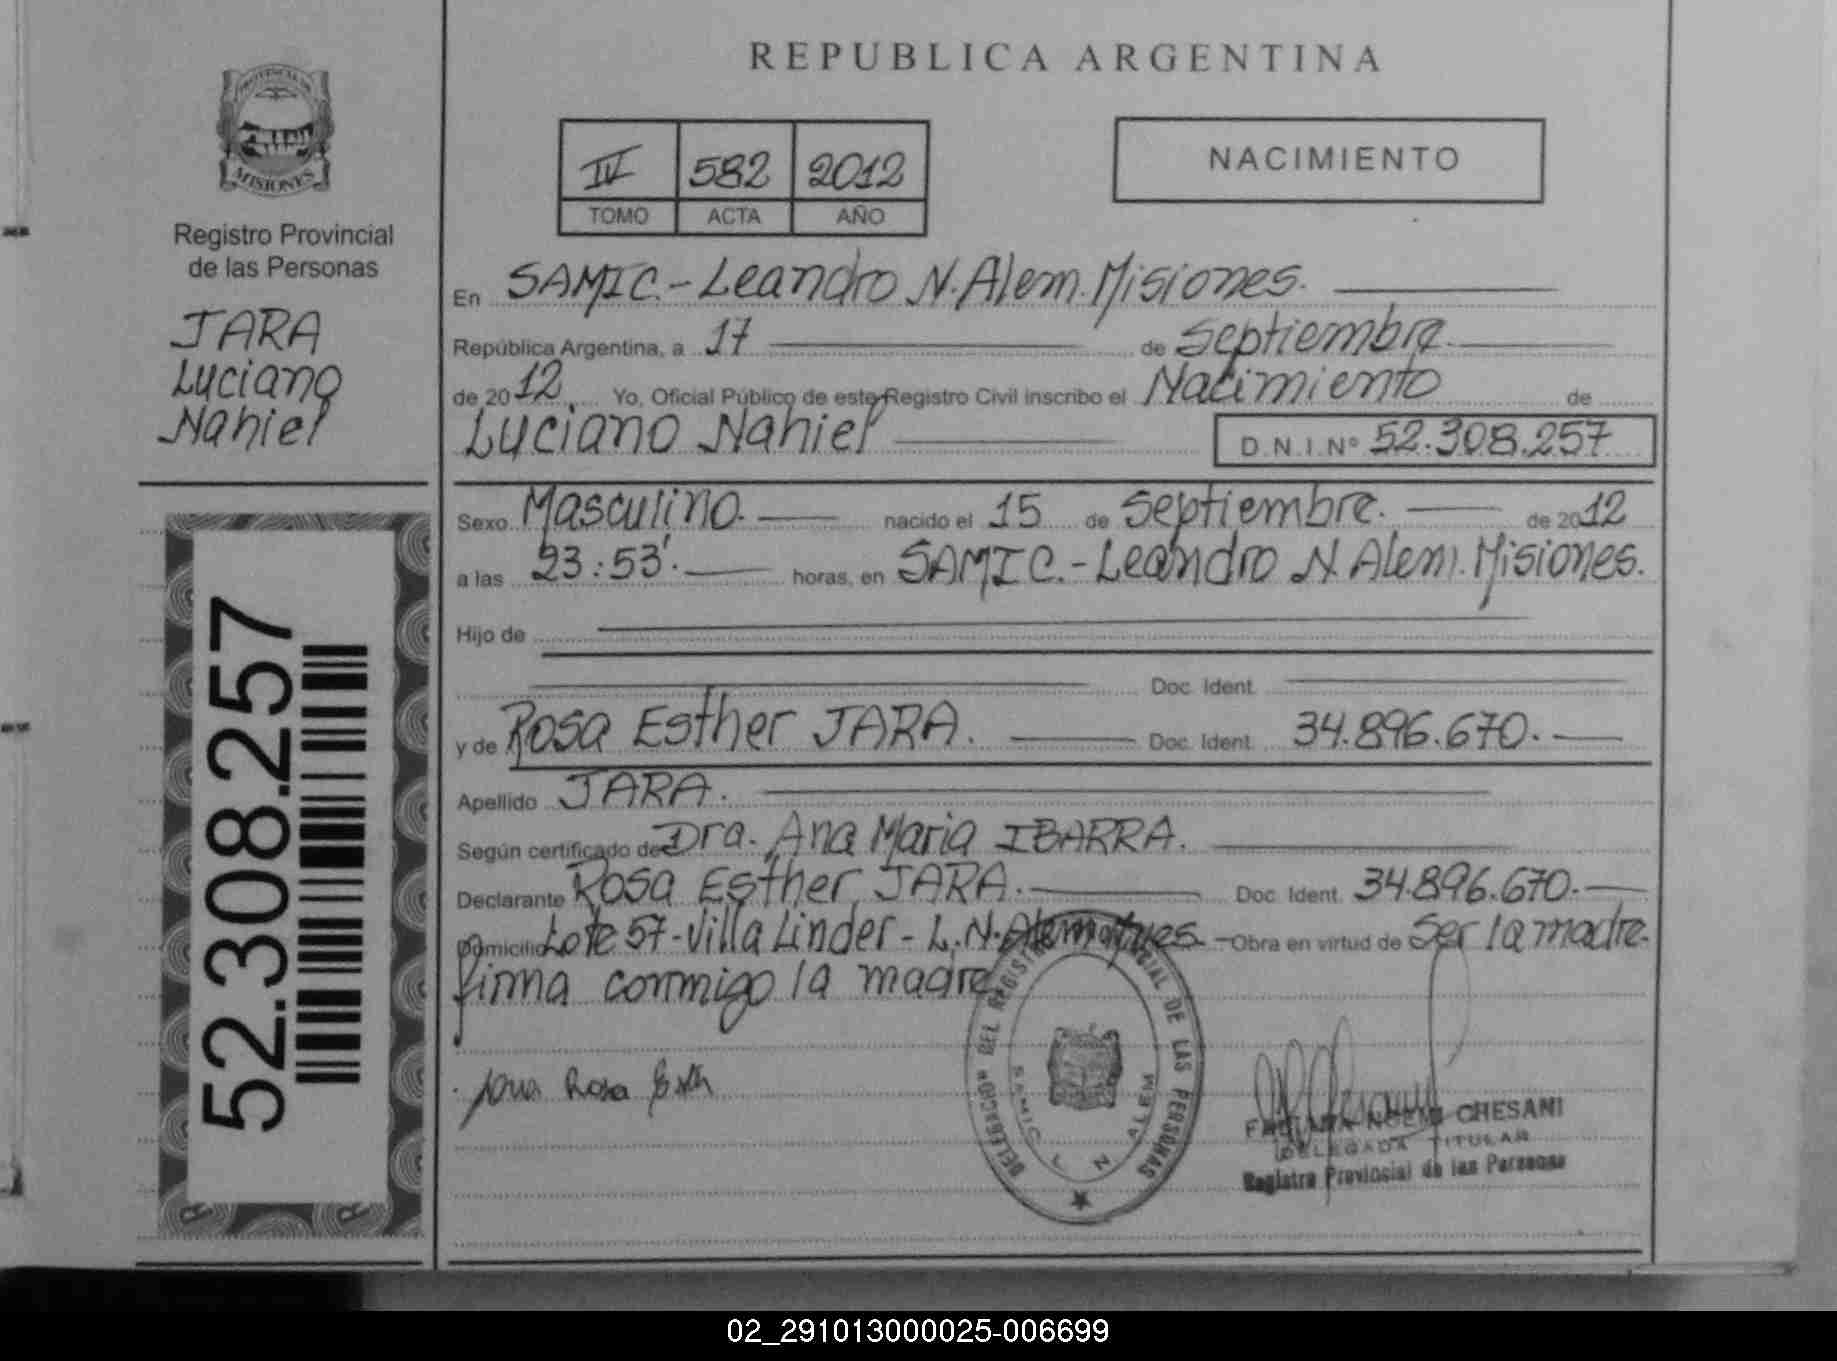 REPUBLICA ARGENTINA
PROVINCIA DE
MISIONES
Registro Provincial
de las Personas
JARA
Luciano
Nahiel
52.308.257
IV 582 2012
TOMO ACTA AÑO
NACIMIENTO
En SAMIC.-Leandro N.Alem.Misiones.
República Argentina, a 17 de Septiembre.
de 2012 Yo, Oficial Público de este Registro Civil inscribo el Nacimiento de
Luciano Nahiel D.N.I.Nº 52.308.257
Sexo Masculino. nacido el 15 de Septiembre. de 2012
a las 23:53'. horas, en SAMIC.-Leandro N Alem.Misiones.
Hijo de
Doc. Ident.
y de Rosa Esther JARA. Doc. Ident. 34.896.670.
Apellido JARA.
Según certificado de Dra. Ana Maria IBARRA.
Declarante Rosa Esther JARA. Doc. Ident. 34.896.670.
Domicilio Lote 57-Villa Linder-L.N.Alem Obra en virtud de Ser la madre.
firma conmigo la madre
Jara Rosa Esth
DELEGACION DEL REGISTRO PROVINCIAL DE LAS PERSONAS
SAMIC L N ALEM
NOEMI CHESANI
DELEGADA TITULAR
Registro Provincial de las Personas
02_291013000025-006699